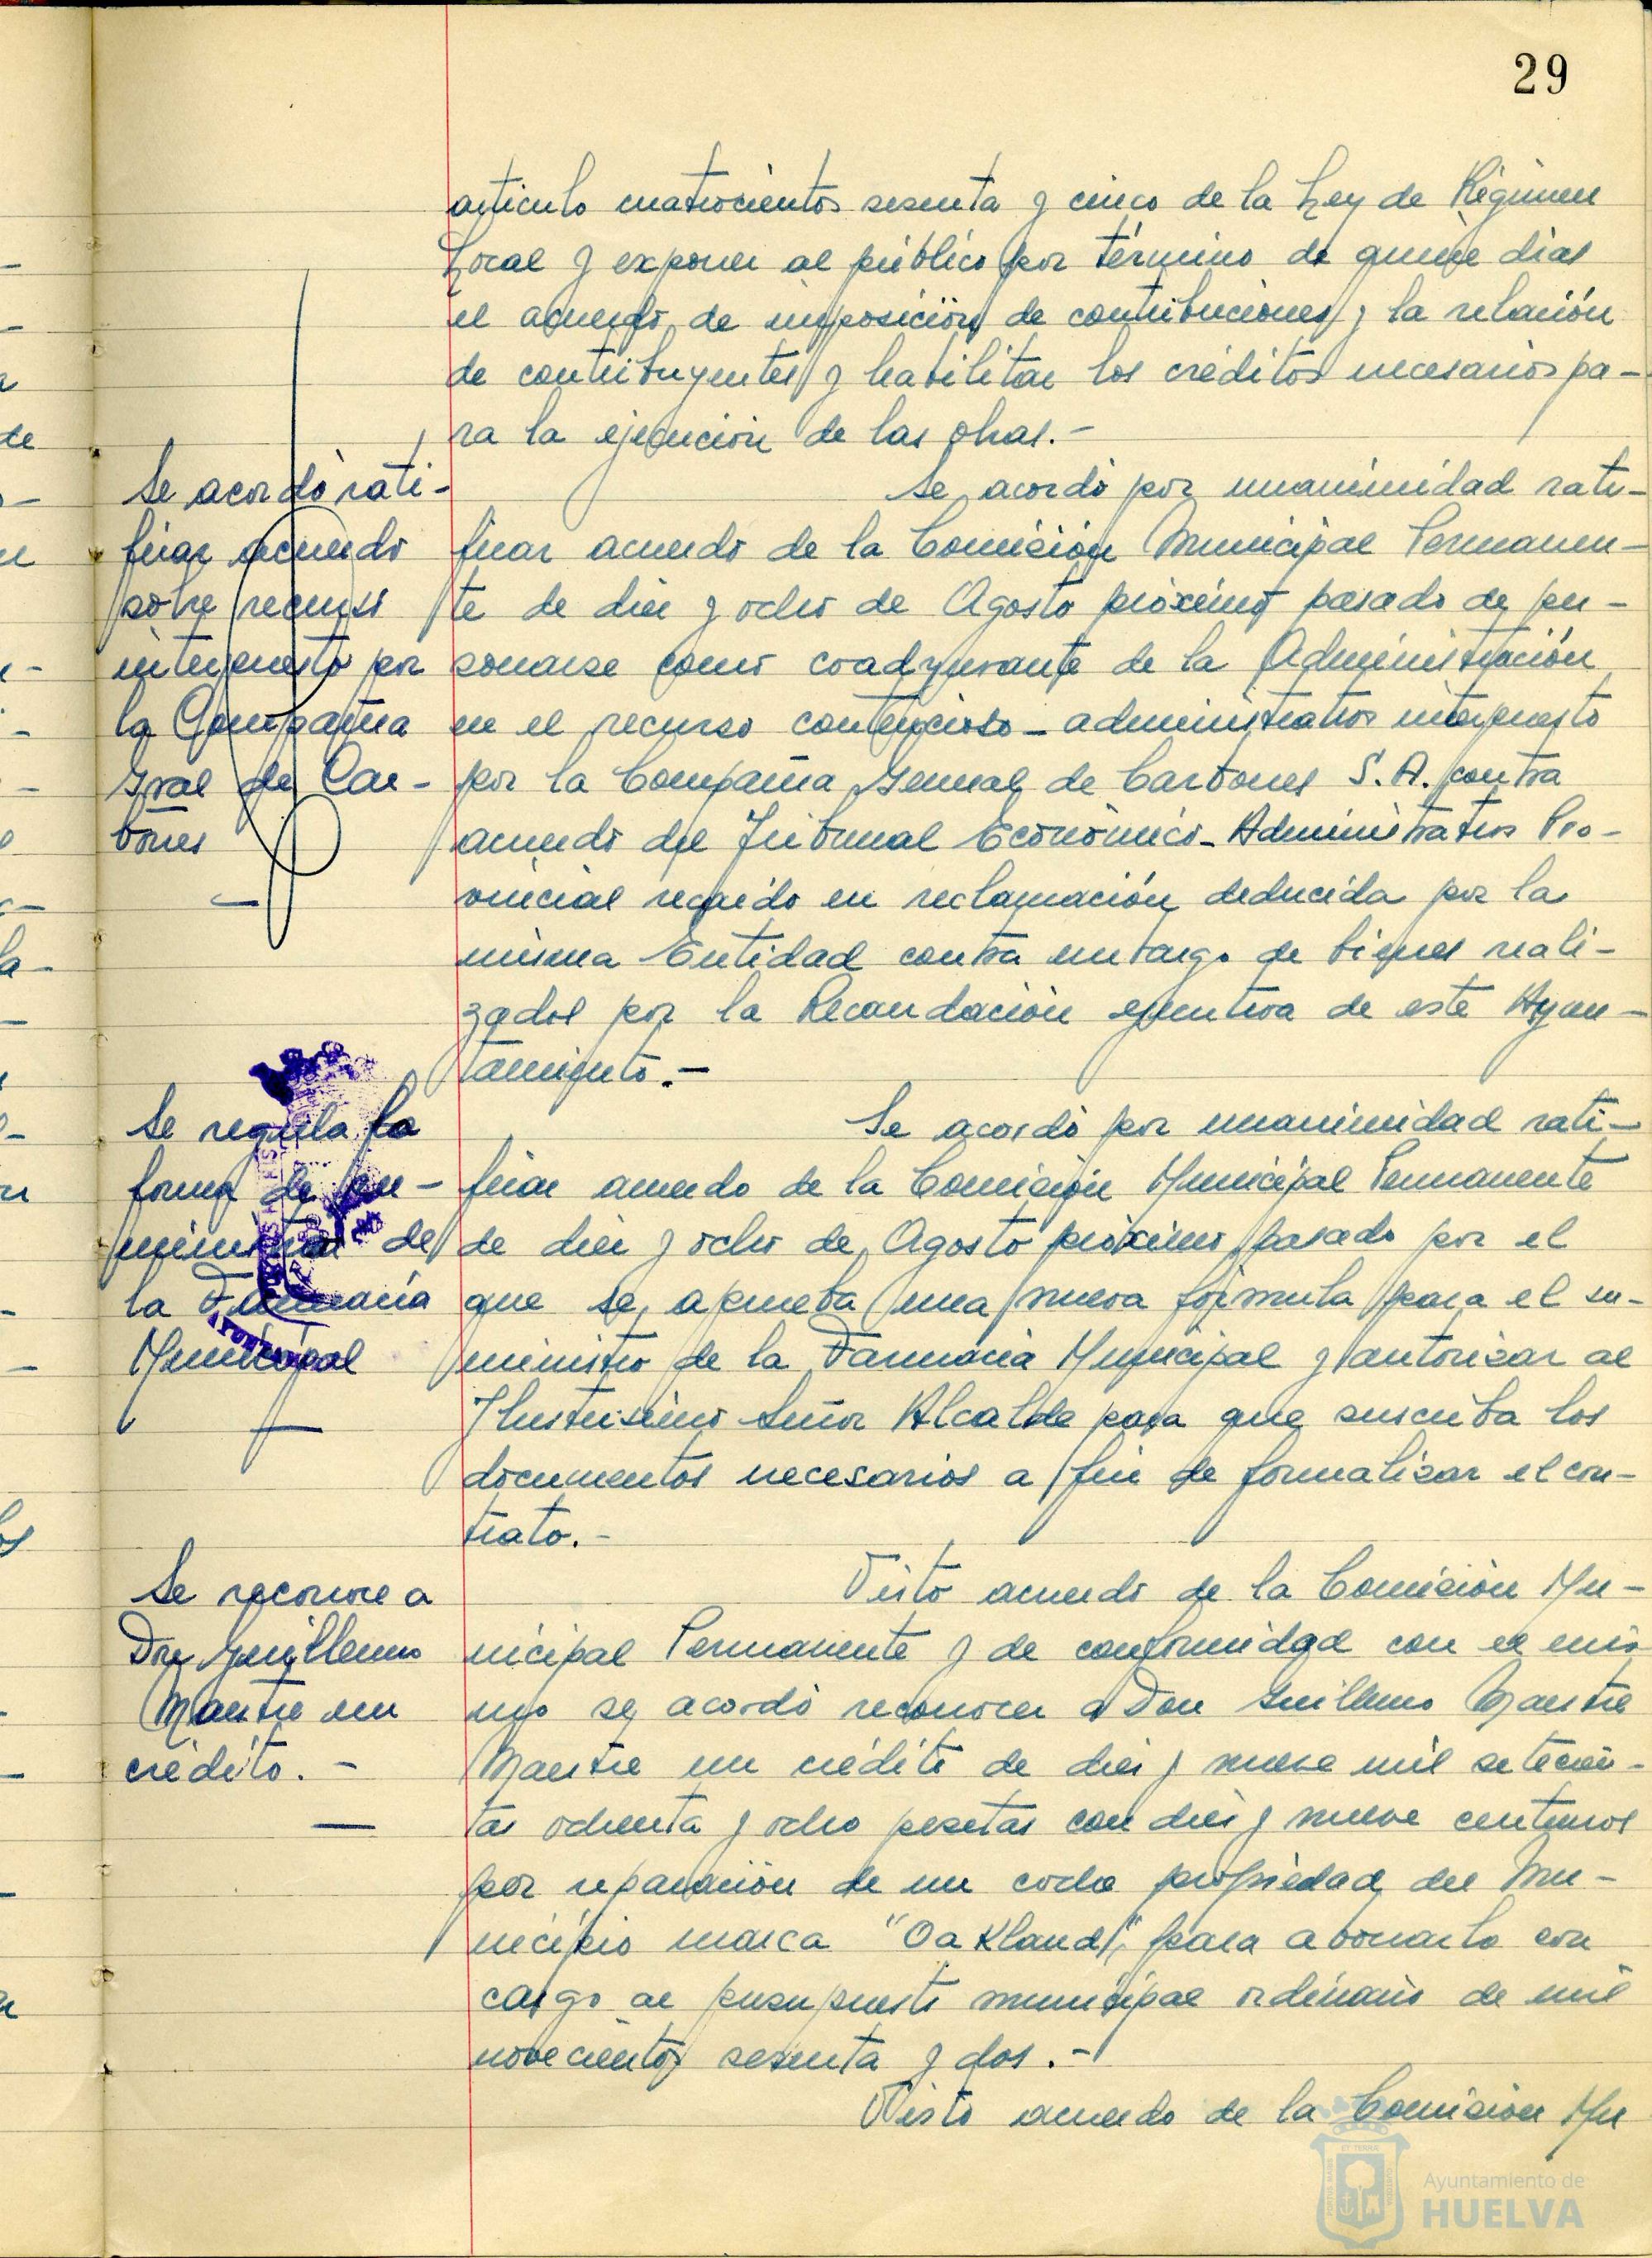 29
artículo cuatrocientos sesenta y cinco de la Ley de Régimen
Local y exponer al público por término de quince días
el acuerdo de imposición de contribuciones y la relación
de contribuyentes y habilitar los créditos necesarios pa-
ra la ejecución de las obras.-
Se acordó rati-
ficar acuerdo
sobre recurso
interpuesto por
la Compañia
Gral de Car-
bones
Se acordó por unanimidad rati-
ficar acuerdo de la Comisión Municipal Permanen-
te de diez y ocho de Agosto próximo pasado de per-
sonarse como coadyuvante de la Administración
en el recurso contencioso-administrativo interpuesto
por la Compañia General de Carbones S.A. contra
acuerdo del Tribunal Económico-Administrativo Pro-
vincial recaido en reclamación deducida por la
misma Entidad contra embargo de bienes reali-
zados por la Recaudación ejecutiva de este Ayun-
tamiento.-
Se regula la
forma de su-
ministrar de
la Farmacia
Municipal
Se acordó por unanimidad rati-
ficar acuerdo de la Comisión Municipal Permanente
de diez y ocho de Agosto próximo pasado por el
que se aprueba una nueva fórmula para el su-
ministro de la Farmacia Municipal y autorizar al
Ilustrisimo Señor Alcalde para que suscriba los
documentos necesarios a fin de formalizar el con-
trato.-
Se reconoce a
Don Guillermo
Maestre un
crédito.-
Visto acuerdo de la Comisión Mu-
nicipal Permanente y de conformidad con el mis
mo se acordó reconocer a Don Guillermo Maestre
Maestre un crédito de diez y nueve mil setecien-
tas ochenta y ocho pesetas con diez y nueve centimos
por reparación de un coche propiedad del Mu-
nicipio marca "Oakland", para abonarlo con
cargo al presupuesto municipal ordinario de mil
novecientos sesenta y dos.-
Visto acuerdo de la Comisión Mu
Ayuntamiento de
HUELVA